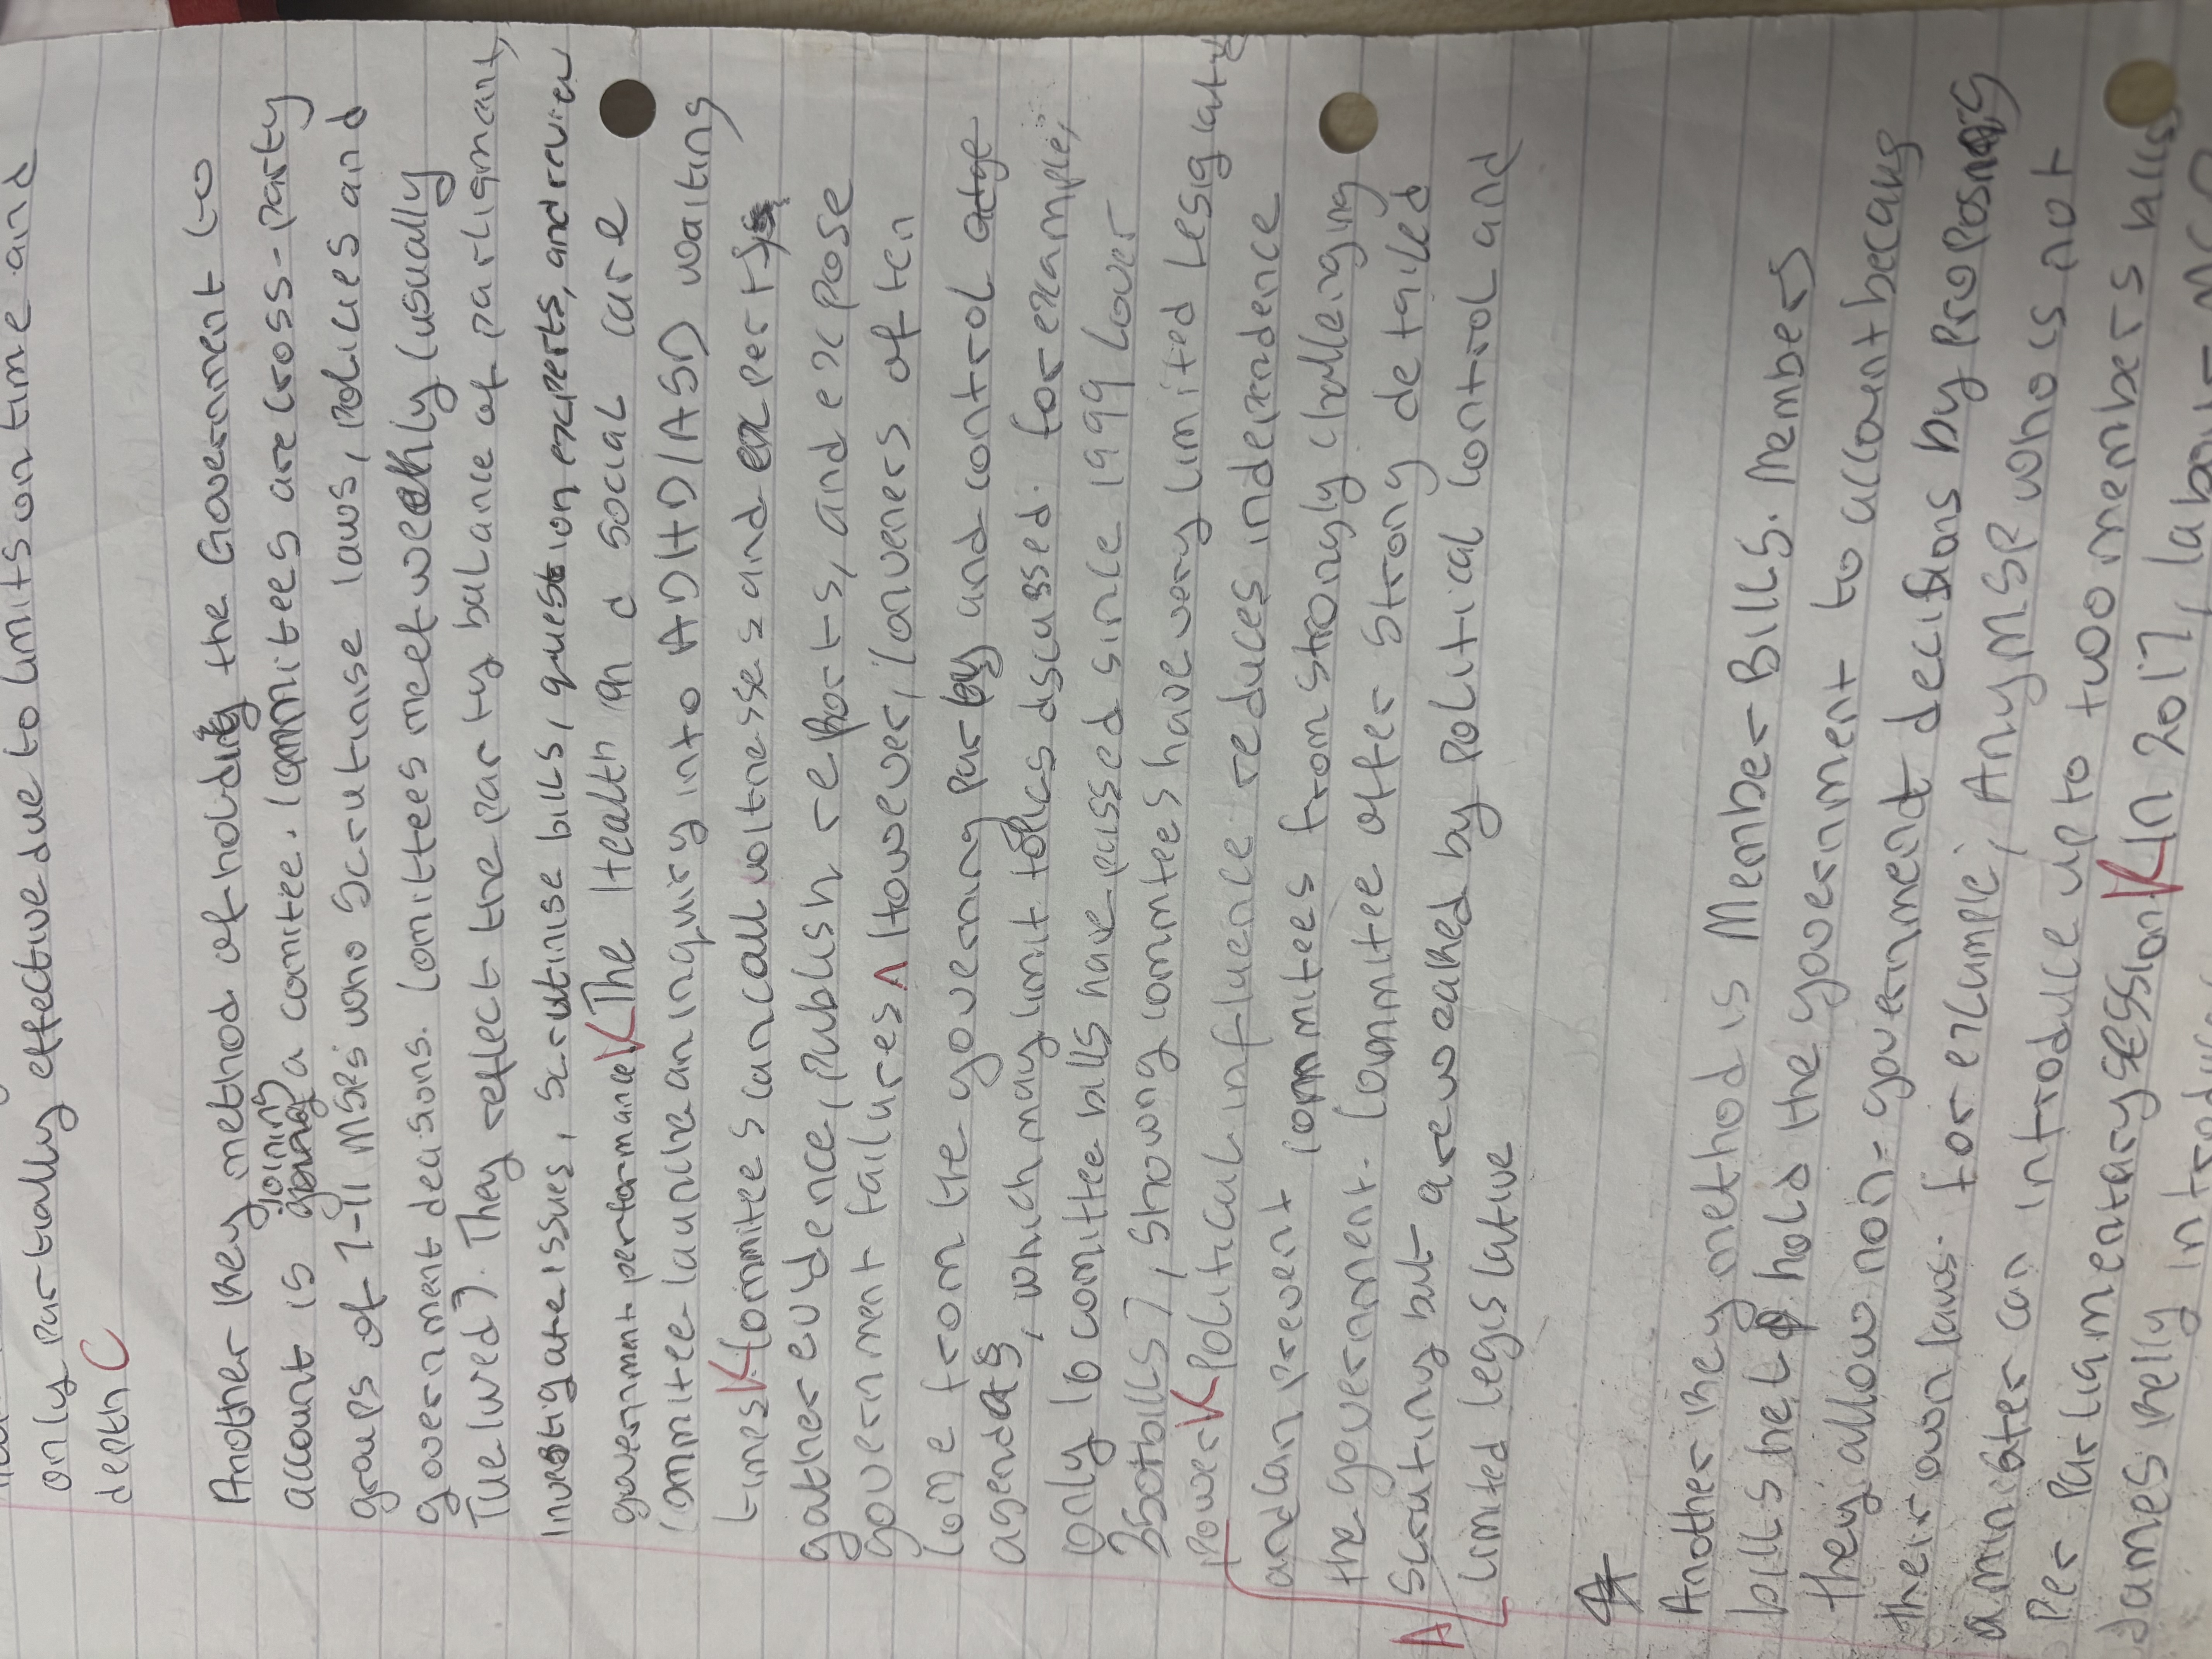 only partially effective due to limits on time and
depth C
Another key method of holding the Government to
joining
account is a comitee. Committees are cross-party
groups of 7-11 MSPs who scrutinise laws, policies and
government decisions. Comittees meet weekly (usually
Tuelwed). They reflect the party balance of parliament,
investigate issues, scrutinise bills, question experts, and review
government performance. K The Health and social care
Committee launche an inquiry into ADHD/ASD waiting
times K Committees can call witnesses and experts
gather evidence, publish reports, and expose
government failures ^ However, Conveners often
come from the governing party and control
agendas, which may limit topics discussed. for example,
only 16 comittee bills have passed since 1999 (over
350 bills), showing committees have very limited Legislative
power K Political influence reduces independence
and can prevent committees from strongly challenging
the government. Committee offer strong detailed
A scrutiny but are weakened by political control and
limited legislative
Another key method is Member Bills. Members
bills help hold the government to account because
they allow non-government decisions by proposing
their own laws. For example, Any MSP who is not
a minister can introduce up to two members bills
Per Parliamentary session K In 2017, labour MSP
James Kelly introduced